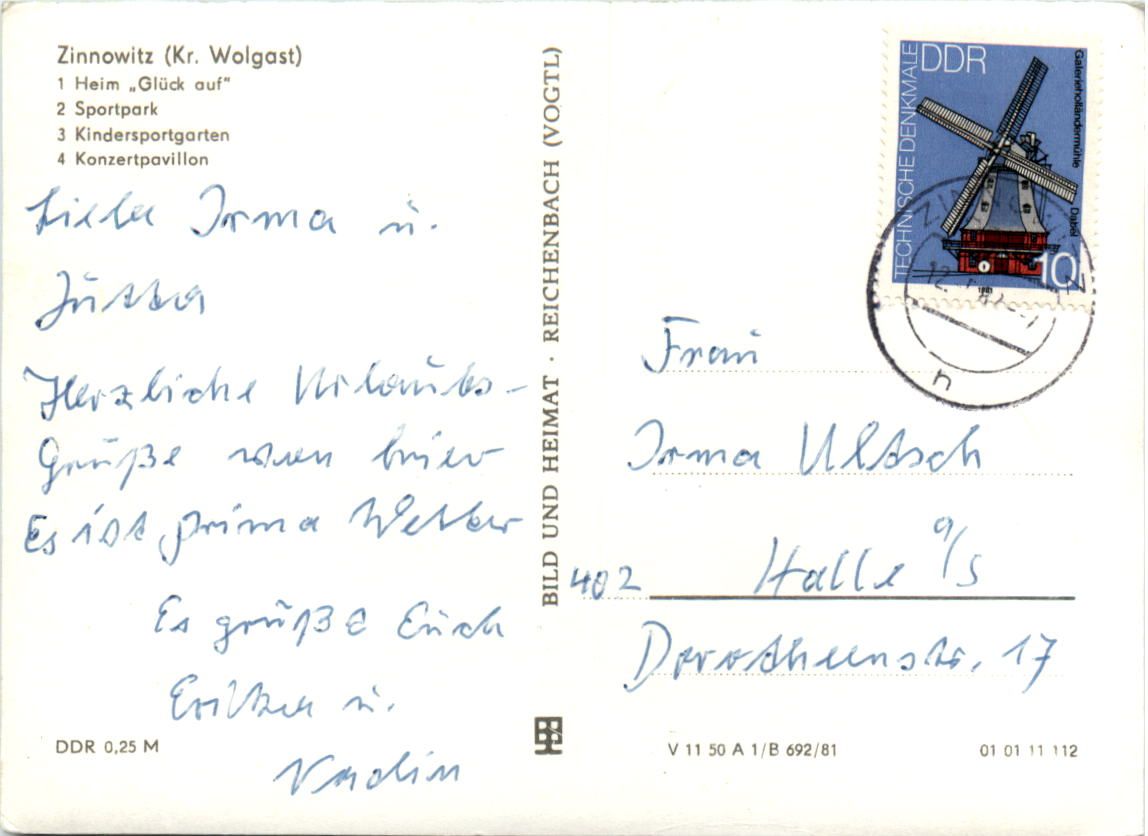 Zinnowitz (Kr. Wolgast)
1 Heim „Glück auf"
2 Sportpark
3 Kindersportgarten
4 Konzertpavillon
Liebe Irma u.
Jutta
Herzliche Urlaubs-
Grüße von hier
Es ist prima Wetter
Es grüße Euch
Erika u.
Nadin
DDR 0,25 M
BILD UND HEIMAT · REICHENBACH (VOGTL)
TECHNISCHE DENKMALE
DDR
Galerieholländermühle
Dabel
10
1981
Frau
Irma Ultsch
402 Halle a/S
Dorotheenstr. 17
V 11 50 A 1/B 692/81
01 01 11 112